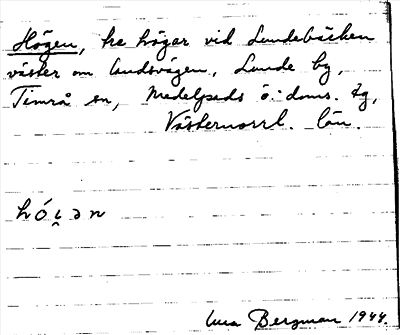 Högen, tre högar vid Lundebäcken
väster om landsvägen, Lunde by,
Timrå sn, Medelpads ö: doms. tg,
Västernorrl. län.
hó̜i̯ən
Bergman 1944.